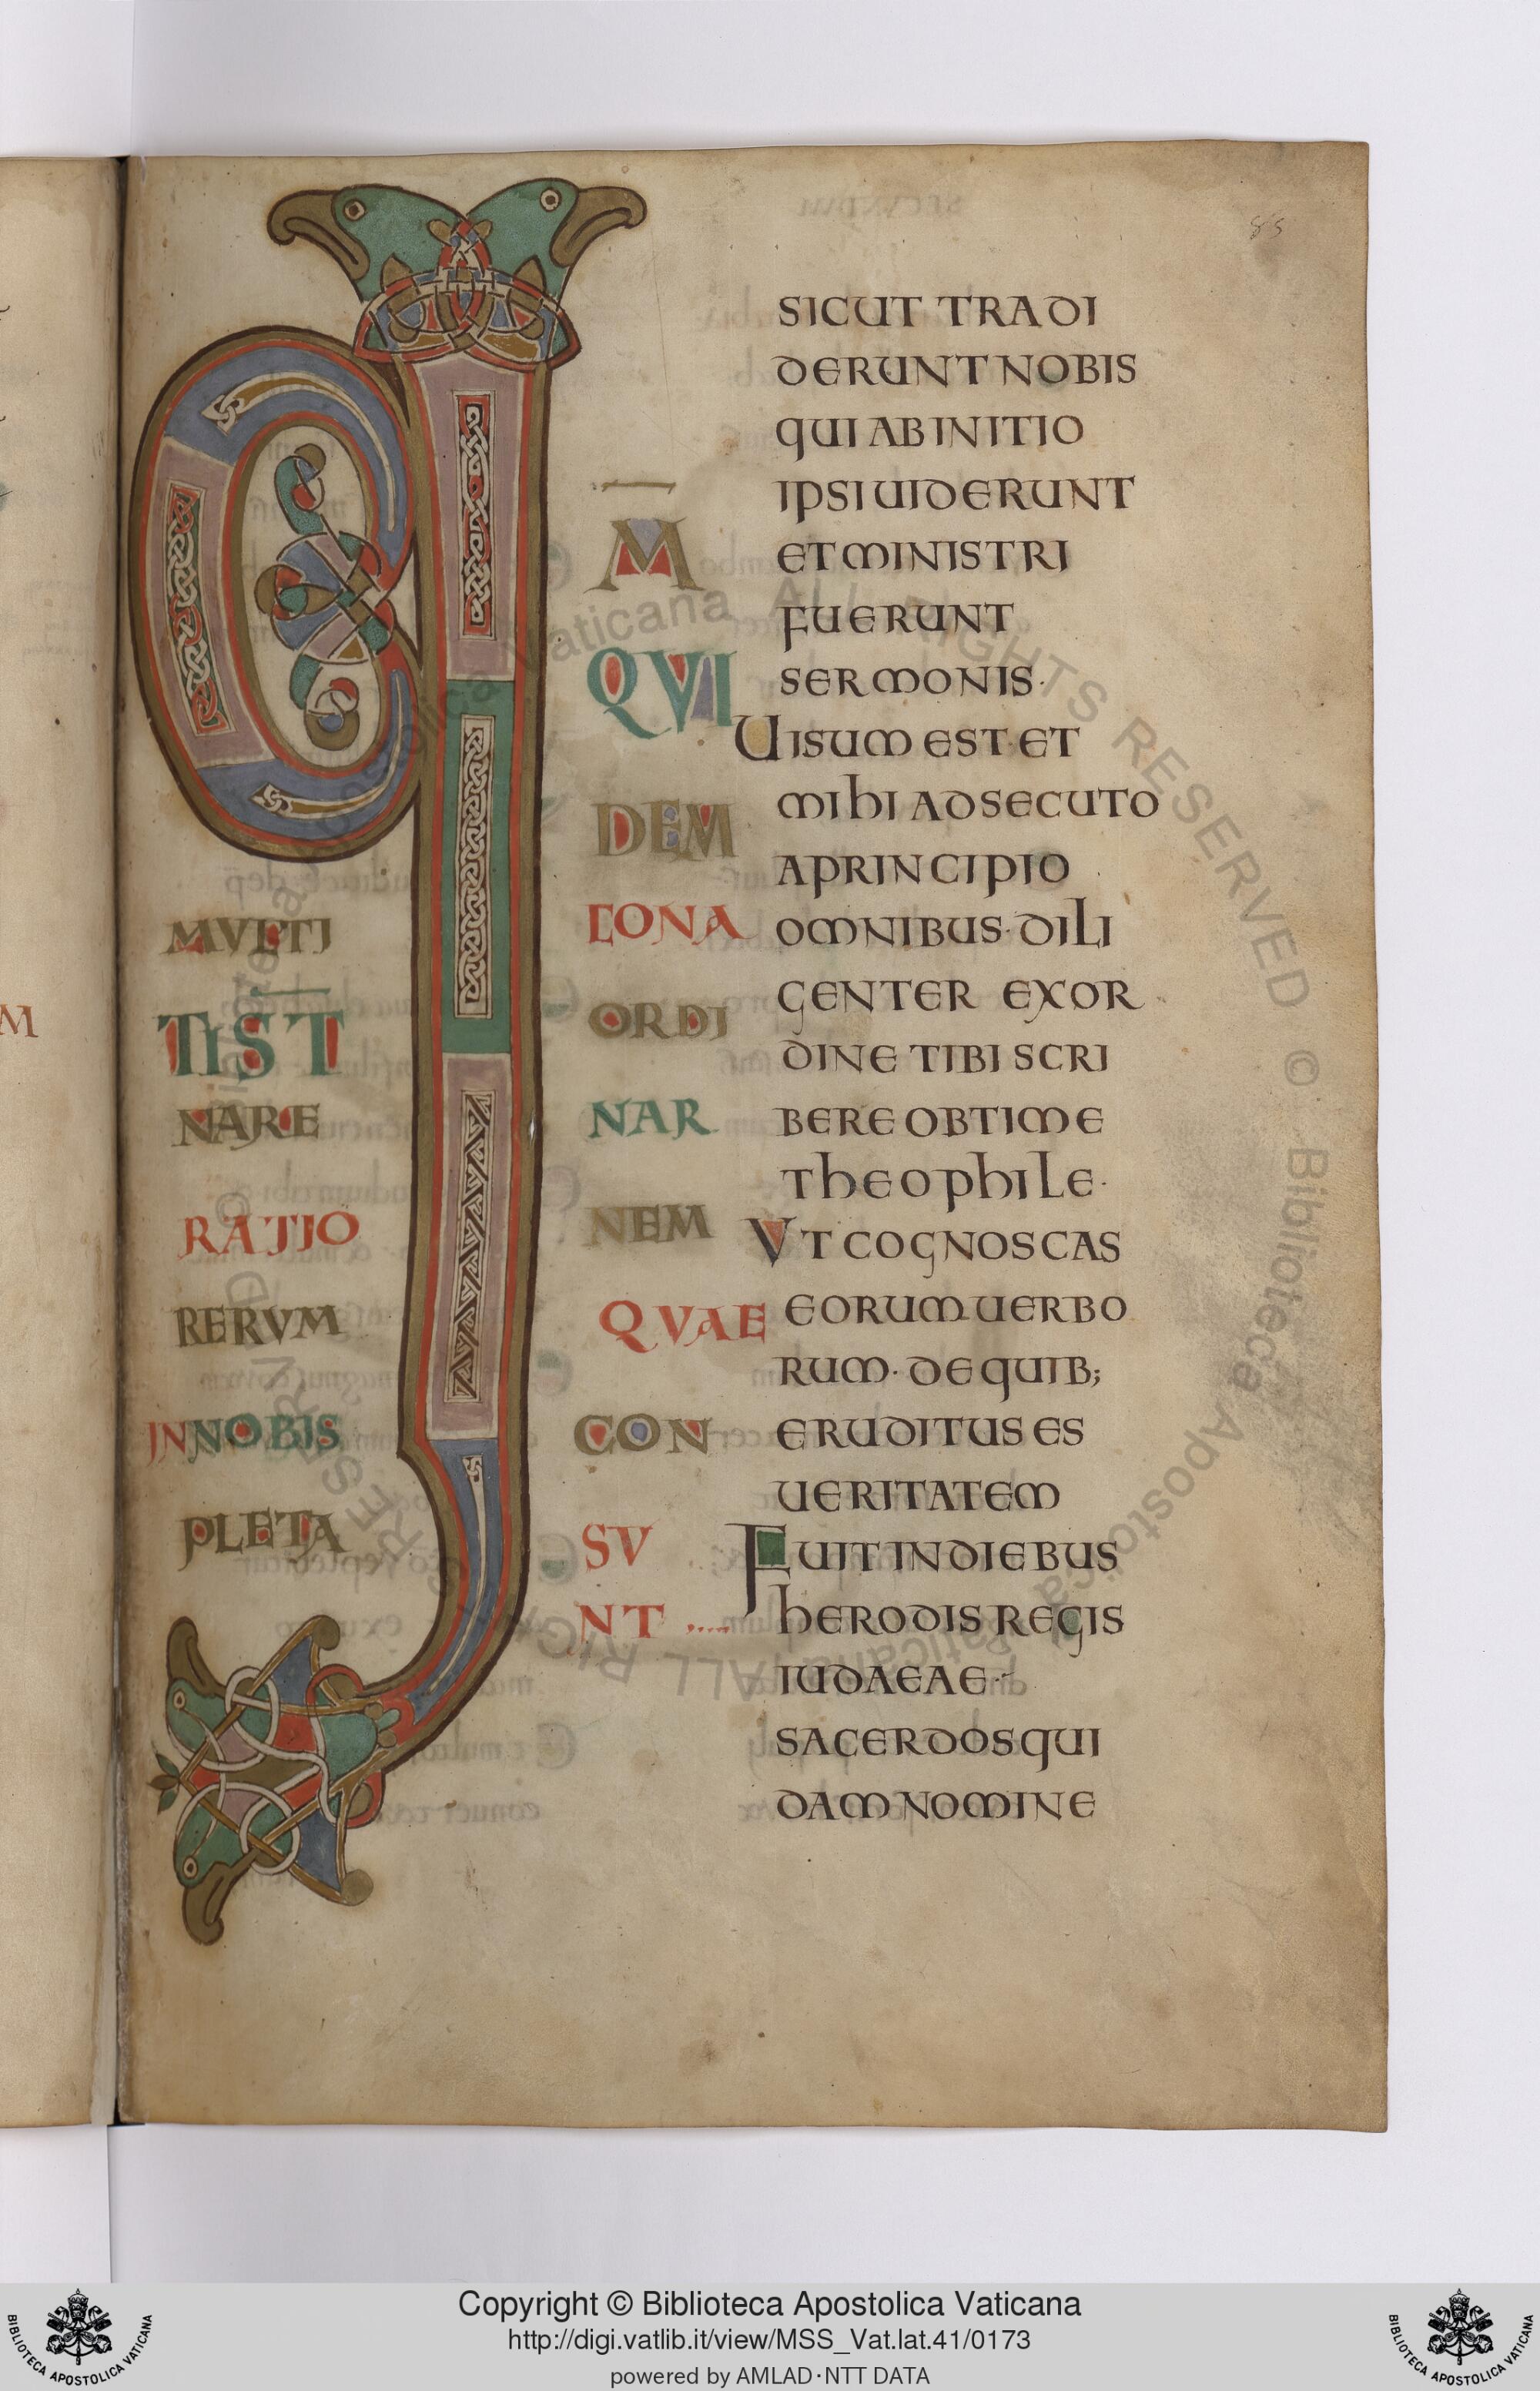 85
Q
M
QVI
DEM
MVLTI
CONA
TIST
ORDI
NARE
NAR
RATIO
NEM
RERVM
QVAE
INNOBIS
CON
PLETA
SV
NT
SICUT TRADI
DERUNT NOBIS
QUI AB INITIO
IPSI UIDERUNT
ET MINISTRI
FUERUNT
SERMONIS·
UISUM EST·ET
MIHI ADSECUTO
A PRINCIPIO
OMNIBUS· DILI
GENTER EXOR
DINE TIBI SCRI
BERE OBTIME
THEOPHILE·
VT COGNOSCAS
EORUM UERBO
RUM· DE QUIB;
ERUDITUS ES
UERITATEM
FUIT IN DIEBUS
HERODIS REGIS
IUDAEAE·
SACERDOS QUI
DAM NOMINE
M
Copyright © Biblioteca Apostolica Vaticana
http://digi.vatlib.it/view/MSS_Vat.lat.41/0173
powered by AMLAD·NTT DATA
BIBLIOTECA APOSTOLICA VATICANA
BIBLIOTECA APOSTOLICA VATICANA
© Biblioteca Apostolica Vaticana ALL RIGHTS RESERVED